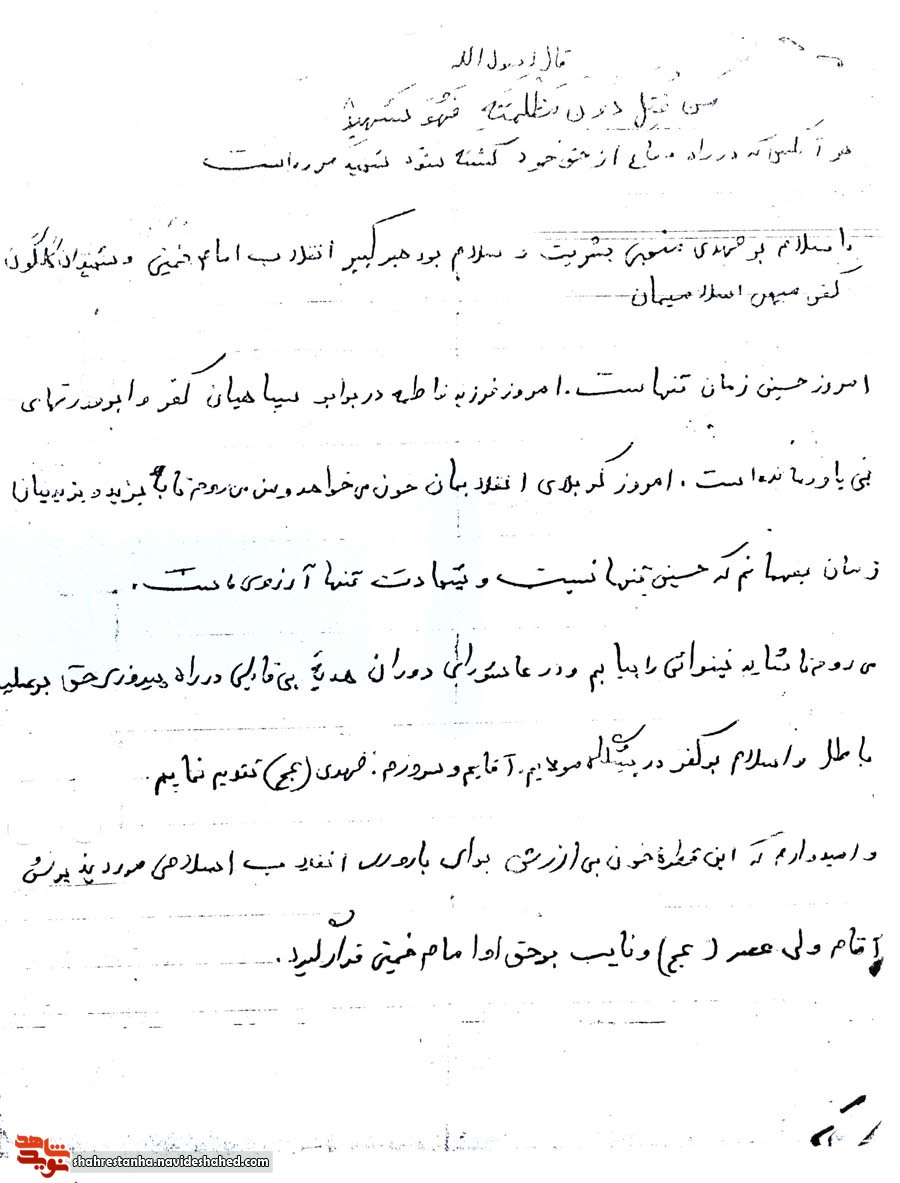 قال رسول الله
من قُتِل دون مَظلَمَتِهِ فَهُوَ شَهیدٌ
هر آنکس که در راه دفاع از حق خود کشته شود شهید مرده است
با سلام بر مهدی منجی بشریت و سلام بر رهبر کبیر انقلاب امام خمینی و شهیدان گلگون
کفن میهن اسلامیمان
امروز حسین زمان تنهاست. امروز فرزند فاطمه در برابر سپاهیان کفر و ابرقدرتهای
بی یاور مانده است. امروز کربلای انقلابمان خون می خواهد و من می روم تا به یزید و یزیدیان
زمان بفهمانم که حسین تنها نیست و شهادت تنها آرزوی ماست.
می روم تا شاید نینوائی را بیابم و در عاشورای دوران هدیهٔ بی قابلی در راه پیروزی حق بر علیه
باطل و اسلام بر کفر در پیشگاه مولایم. آقایم و سرورم. مهدی (عج) تقدیم نمایم.
و امیدوارم که این قطرهٔ خون بی ارزش برای باروری انقلاب اسلامی مورد پذیرش
آقام ولی عصر (عج) و نایب بر حق او امام خمینی قرار گیرد.
نوید شاهد
shahrestanha.navideshahed.com